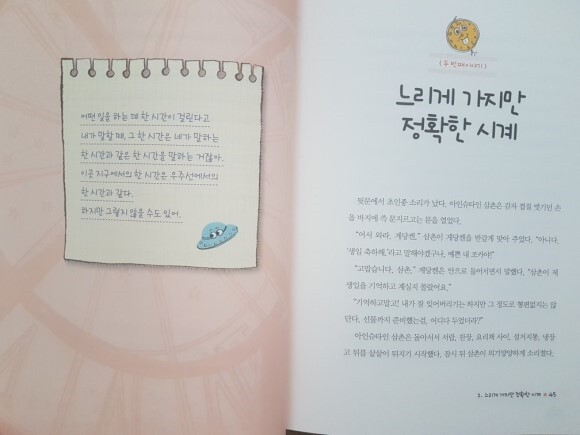 어떤 일을 하는 데 한 시간이 걸린다고
내가 말할 때, 그 한 시간은 네가 말하는
한 시간과 같은 한 시간을 말하는 거잖아.
이곳 지구에서의 한 시간은 우주선에서의
한 시간과 같다.
하지만 그렇지 않을 수도 있어.
( 두 번째 이야기 )
느리게 가지만
정확한 시계
뒷문에서 초인종 소리가 났다. 아인슈타인 삼촌은 감자 껍질 벗기던 손
을 바지에 쓱 문지르고는 문을 열었다.
“어서 와라, 게당켄.” 삼촌이 게당켄을 반갑게 맞아 주었다. “아니다,
‘생일 축하해.’라고 말해야겠구나, 예쁜 내 조카야!”
“고맙습니다, 삼촌.” 게당켄은 안으로 들어서면서 말했다. “삼촌이 제
생일을 기억하고 계실지 몰랐어요.”
“기억하고말고! 내가 잘 잊어버리기는 하지만 그 정도로 형편없지는 않
단다. 선물까지 준비했는걸. 어디다 두었더라?”
아인슈타인 삼촌은 돌아서서 서랍, 찬장, 요리책 사이, 설거지통, 냉장
고 뒤를 샅샅이 뒤지기 시작했다. 잠시 뒤 삼촌이 의기양양하게 소리쳤다.
2. 느리게 가지만 정확한 시계 45